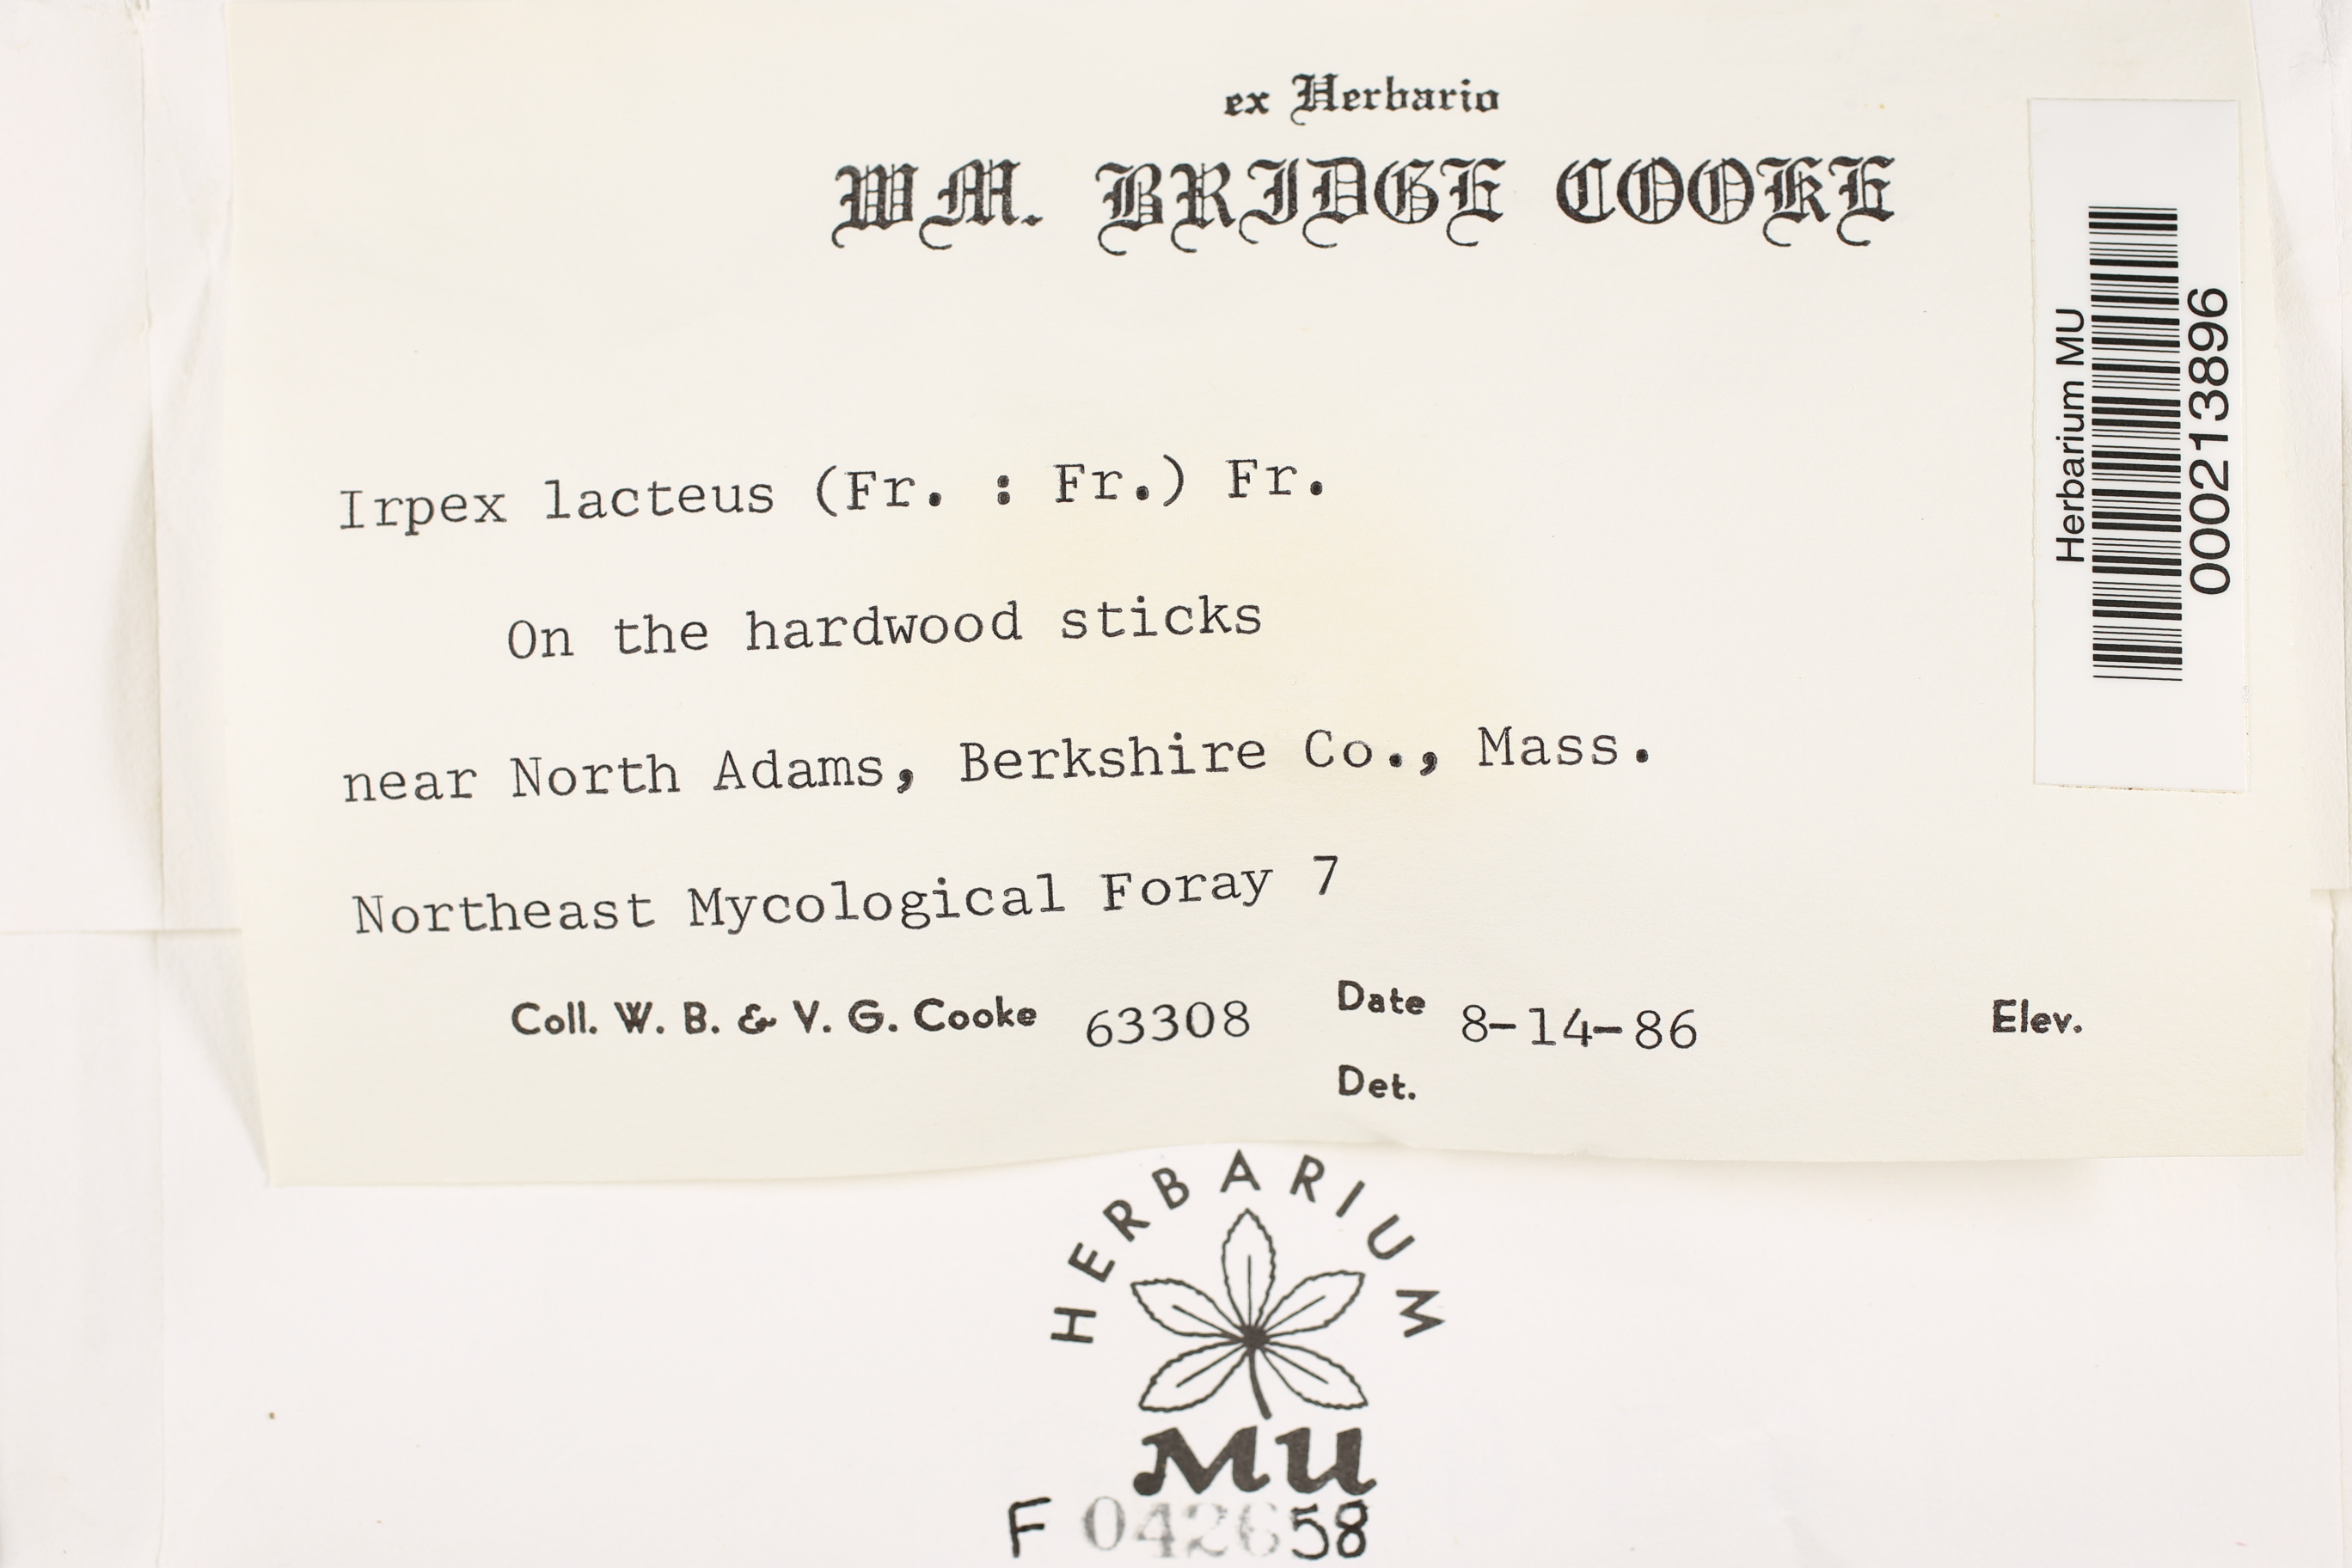 ex Herbario
WM. BRIDGE COOKE
Herbarium MU
000213896
Irpex lacteus (Fr. : Fr.) Fr.
On the hardwood sticks
near North Adams, Berkshire Co., Mass.
Northeast Mycological Foray 7
Coll. W. B. & V. G. Cooke 63308 Date 8-14-86 Elev.
Det.
HERBARIUM
MU
F 042658